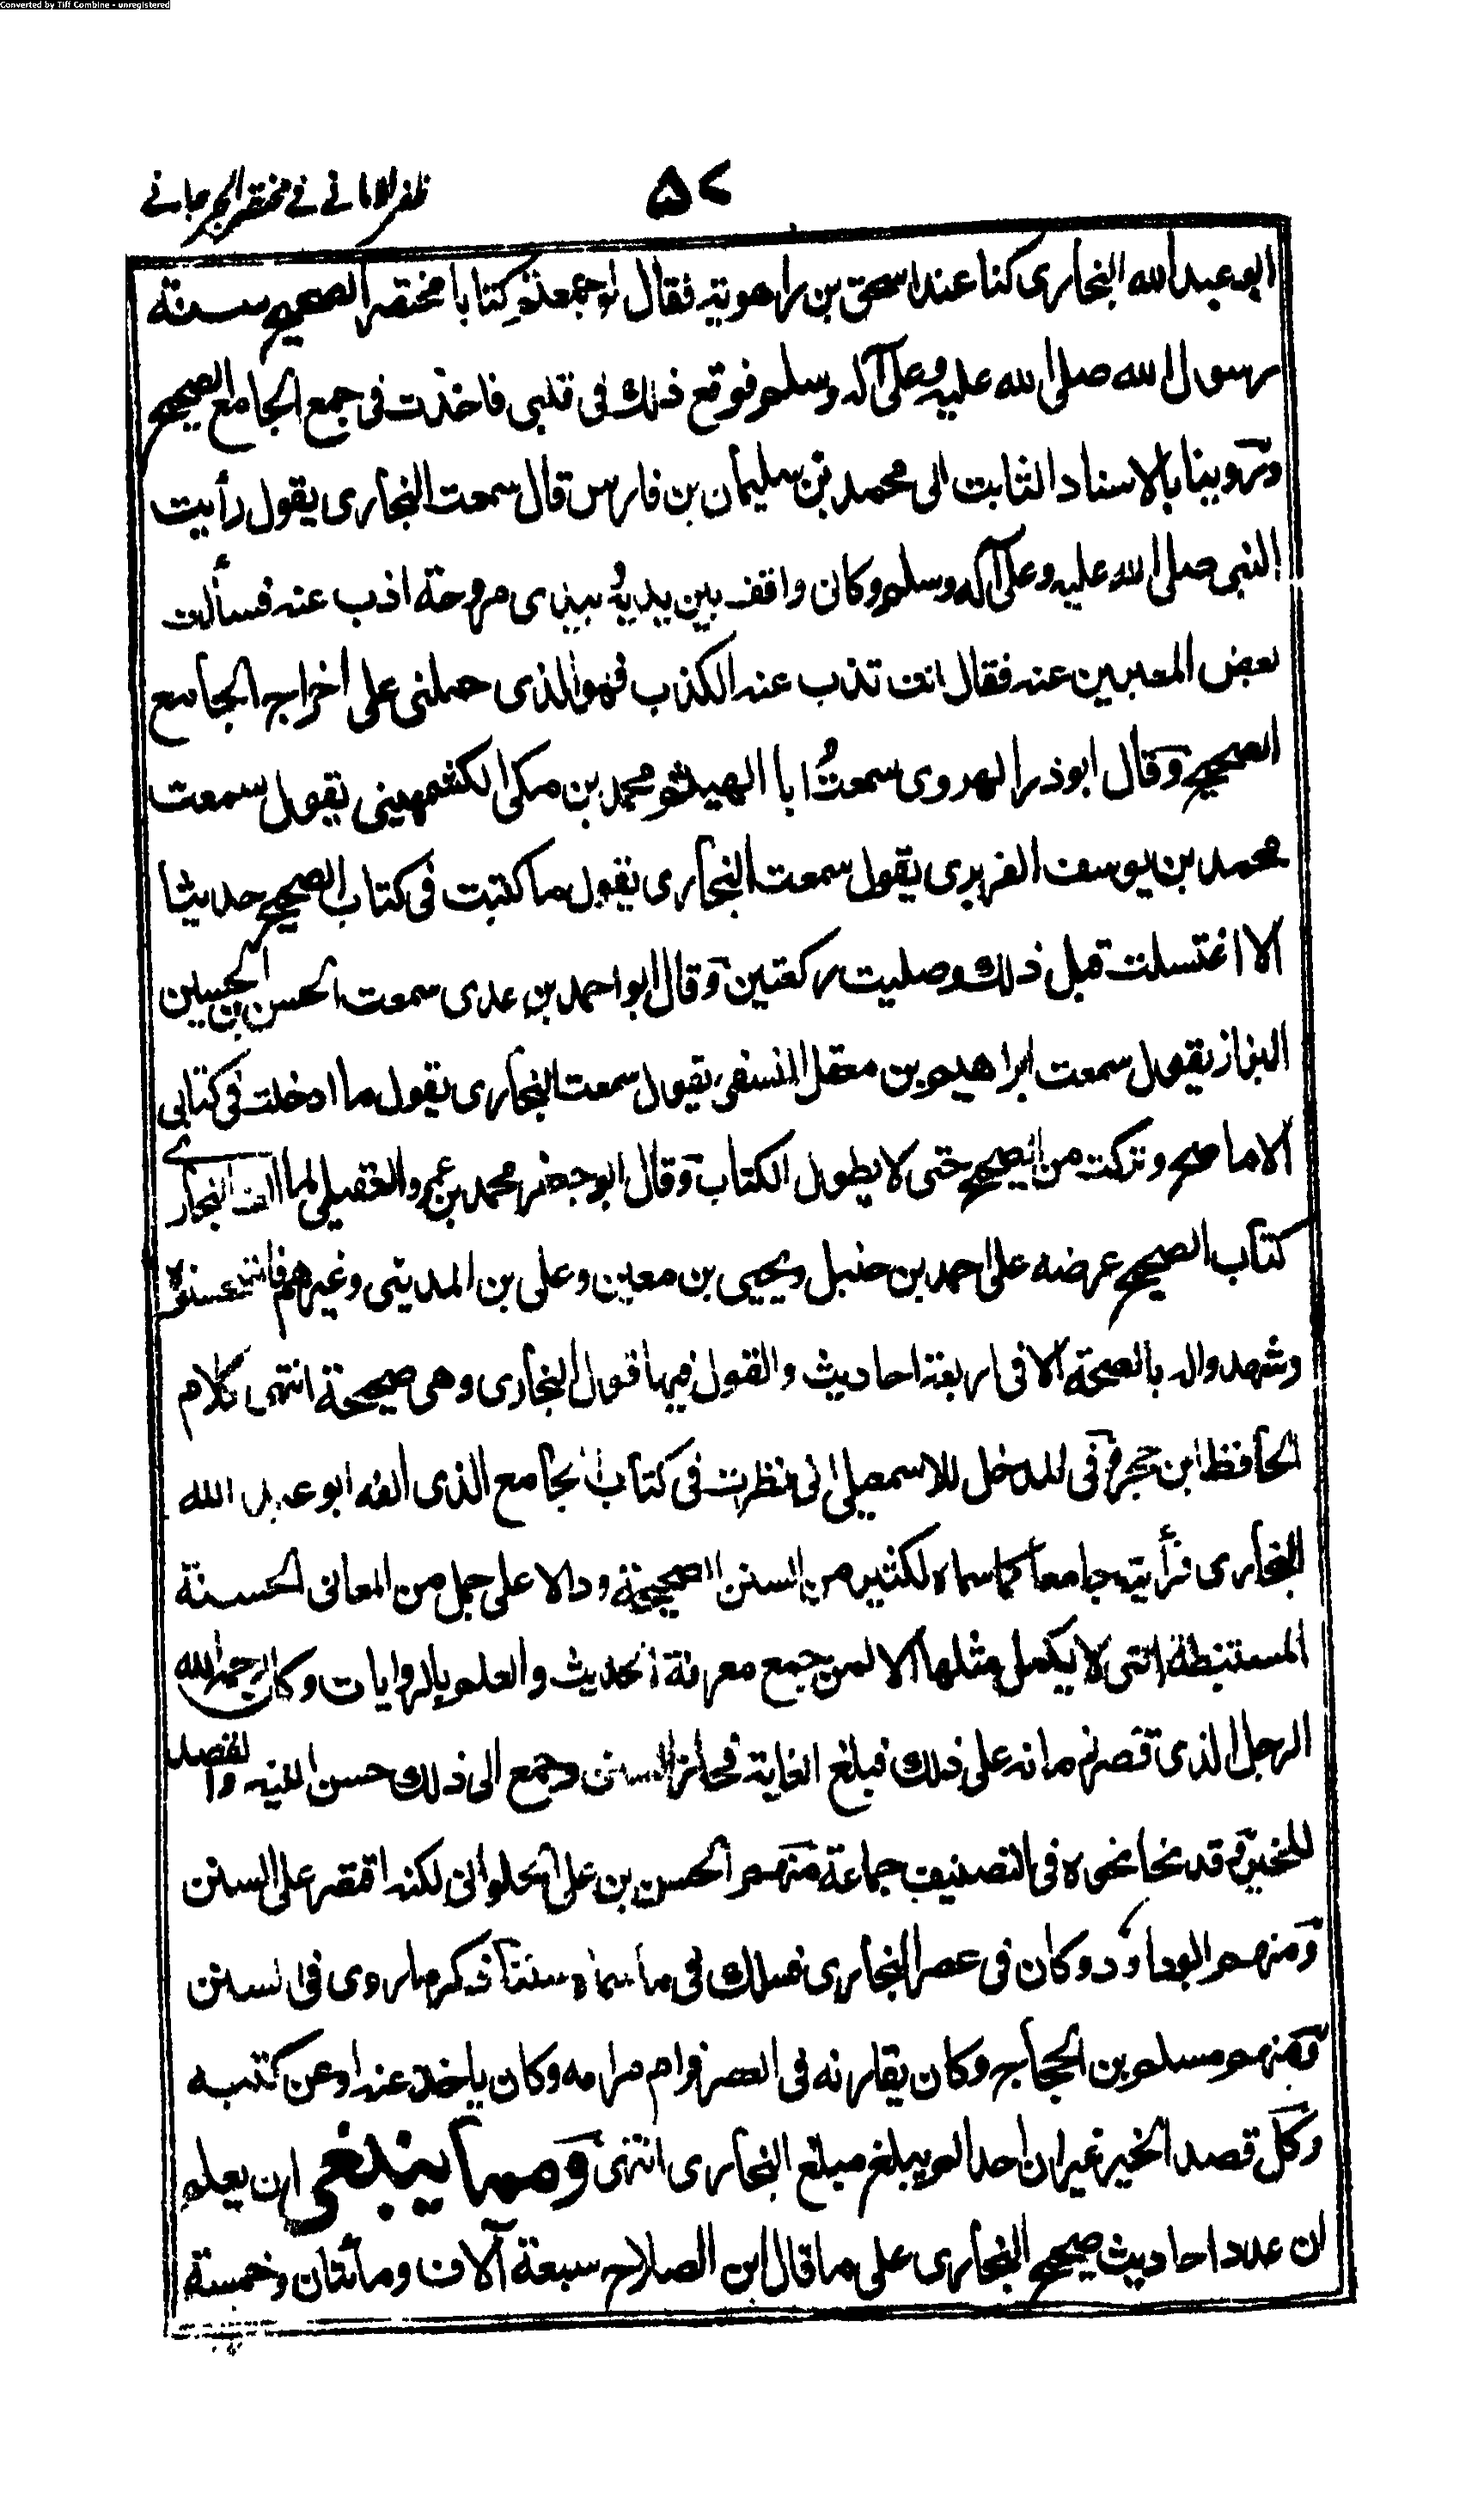 Converted by Tiff Combine - unregistered
ظفر الامانى فى مختصر الجرجانى
٥٢
ابو عبد الله البخارى كنا عند اسحق بن راهويه فقال لو جمعتم كتابا مختصر الصحيح سنة
رسول الله صلى الله عليه وعلى آله وسلم فوقع ذلك فى قلبى فاخذت فى جمع الجامع الصحيح
وروينا بالاسناد الثابت الى محمد بن سليمان بن فارس قال سمعت البخارى يقول رأيت
النبى صلى الله عليه وعلى آله وسلم وكانى واقف بين يديه بيدى مروحة اذب عنه فسألت
بعض المعبرين عنه فقال انت تذب عنه الكذب فهو الذى حملنى على اخراج الجامع
الصحيح وقال ابو ذر الهروى سمعتُ ابا الهيثم محمد بن مكى الكشميهنى يقول سمعت
محمد بن يوسف الفربرى يقول سمعت البخارى يقول ما كتبت فى كتاب الصحيح حديثا
الا اغتسلت قبل ذلك وصليت ركعتين وقال ابو احمد بن عدى سمعت الحسن بن الحسين
البزاز يقول سمعت ابراهيم بن معقل النسفى يقول سمعت البخارى يقول ما ادخلت فى كتابى
الا ما صح وتركت من الصحيح حتى لا يطول الكتاب وقال ابو جعفر محمد بن عمرو العقيلى لما الف البخارى
كتاب الصحيح عرضه على احمد بن حنبل ويحيى بن معين وعلى بن المدينى وغيرهم فاستحسنوه
وشهدوا له بالصحة الا فى اربعة احاديث والقول فيها قول البخارى وهى صحيحة انتهى كلام
الحافظ ابن حجر وفى المدخل للاسمعيلى انى نظرت فى كتاب الجامع الذى الفه ابو عبد الله
البخارى فرأيته جامعا كما سماه لكثير من السنن الصحيحة ودالا على جمل من المعانى الحسنة
المستنبطة التى لا يكمل مثلها الا لمن جمع معرفة الحديث والعلم بالروايات وكان رحمه الله
الرجل الذى قصر زمانه على ذلك فبلغ الغاية فحاز السنن وجمع الى ذلك حسن النية والقصد
للخير وقد نحا نحوه فى التصنيف جماعة منهم الحسن بن على الحلوانى لكنه اقتصر على السنن
ومنهم ابو داؤد وكان فى عصر البخارى فسلك فى ما سماه سننا ذكر ما روى فى السنن
ومنهم مسلم بن الحجاج وكان يقارنه فى العصر فرام مرامه وكان ياخذ عنه او عن كتبه
وكل قصد الخير غير ان احدا لم يبلغ مبلغ البخارى انتهى ومما ينبغى ان يعلم
ان عدد احاديث صحيح البخارى على ما قال ابن الصلاح سبعة آلاف ومائتان وخمسة